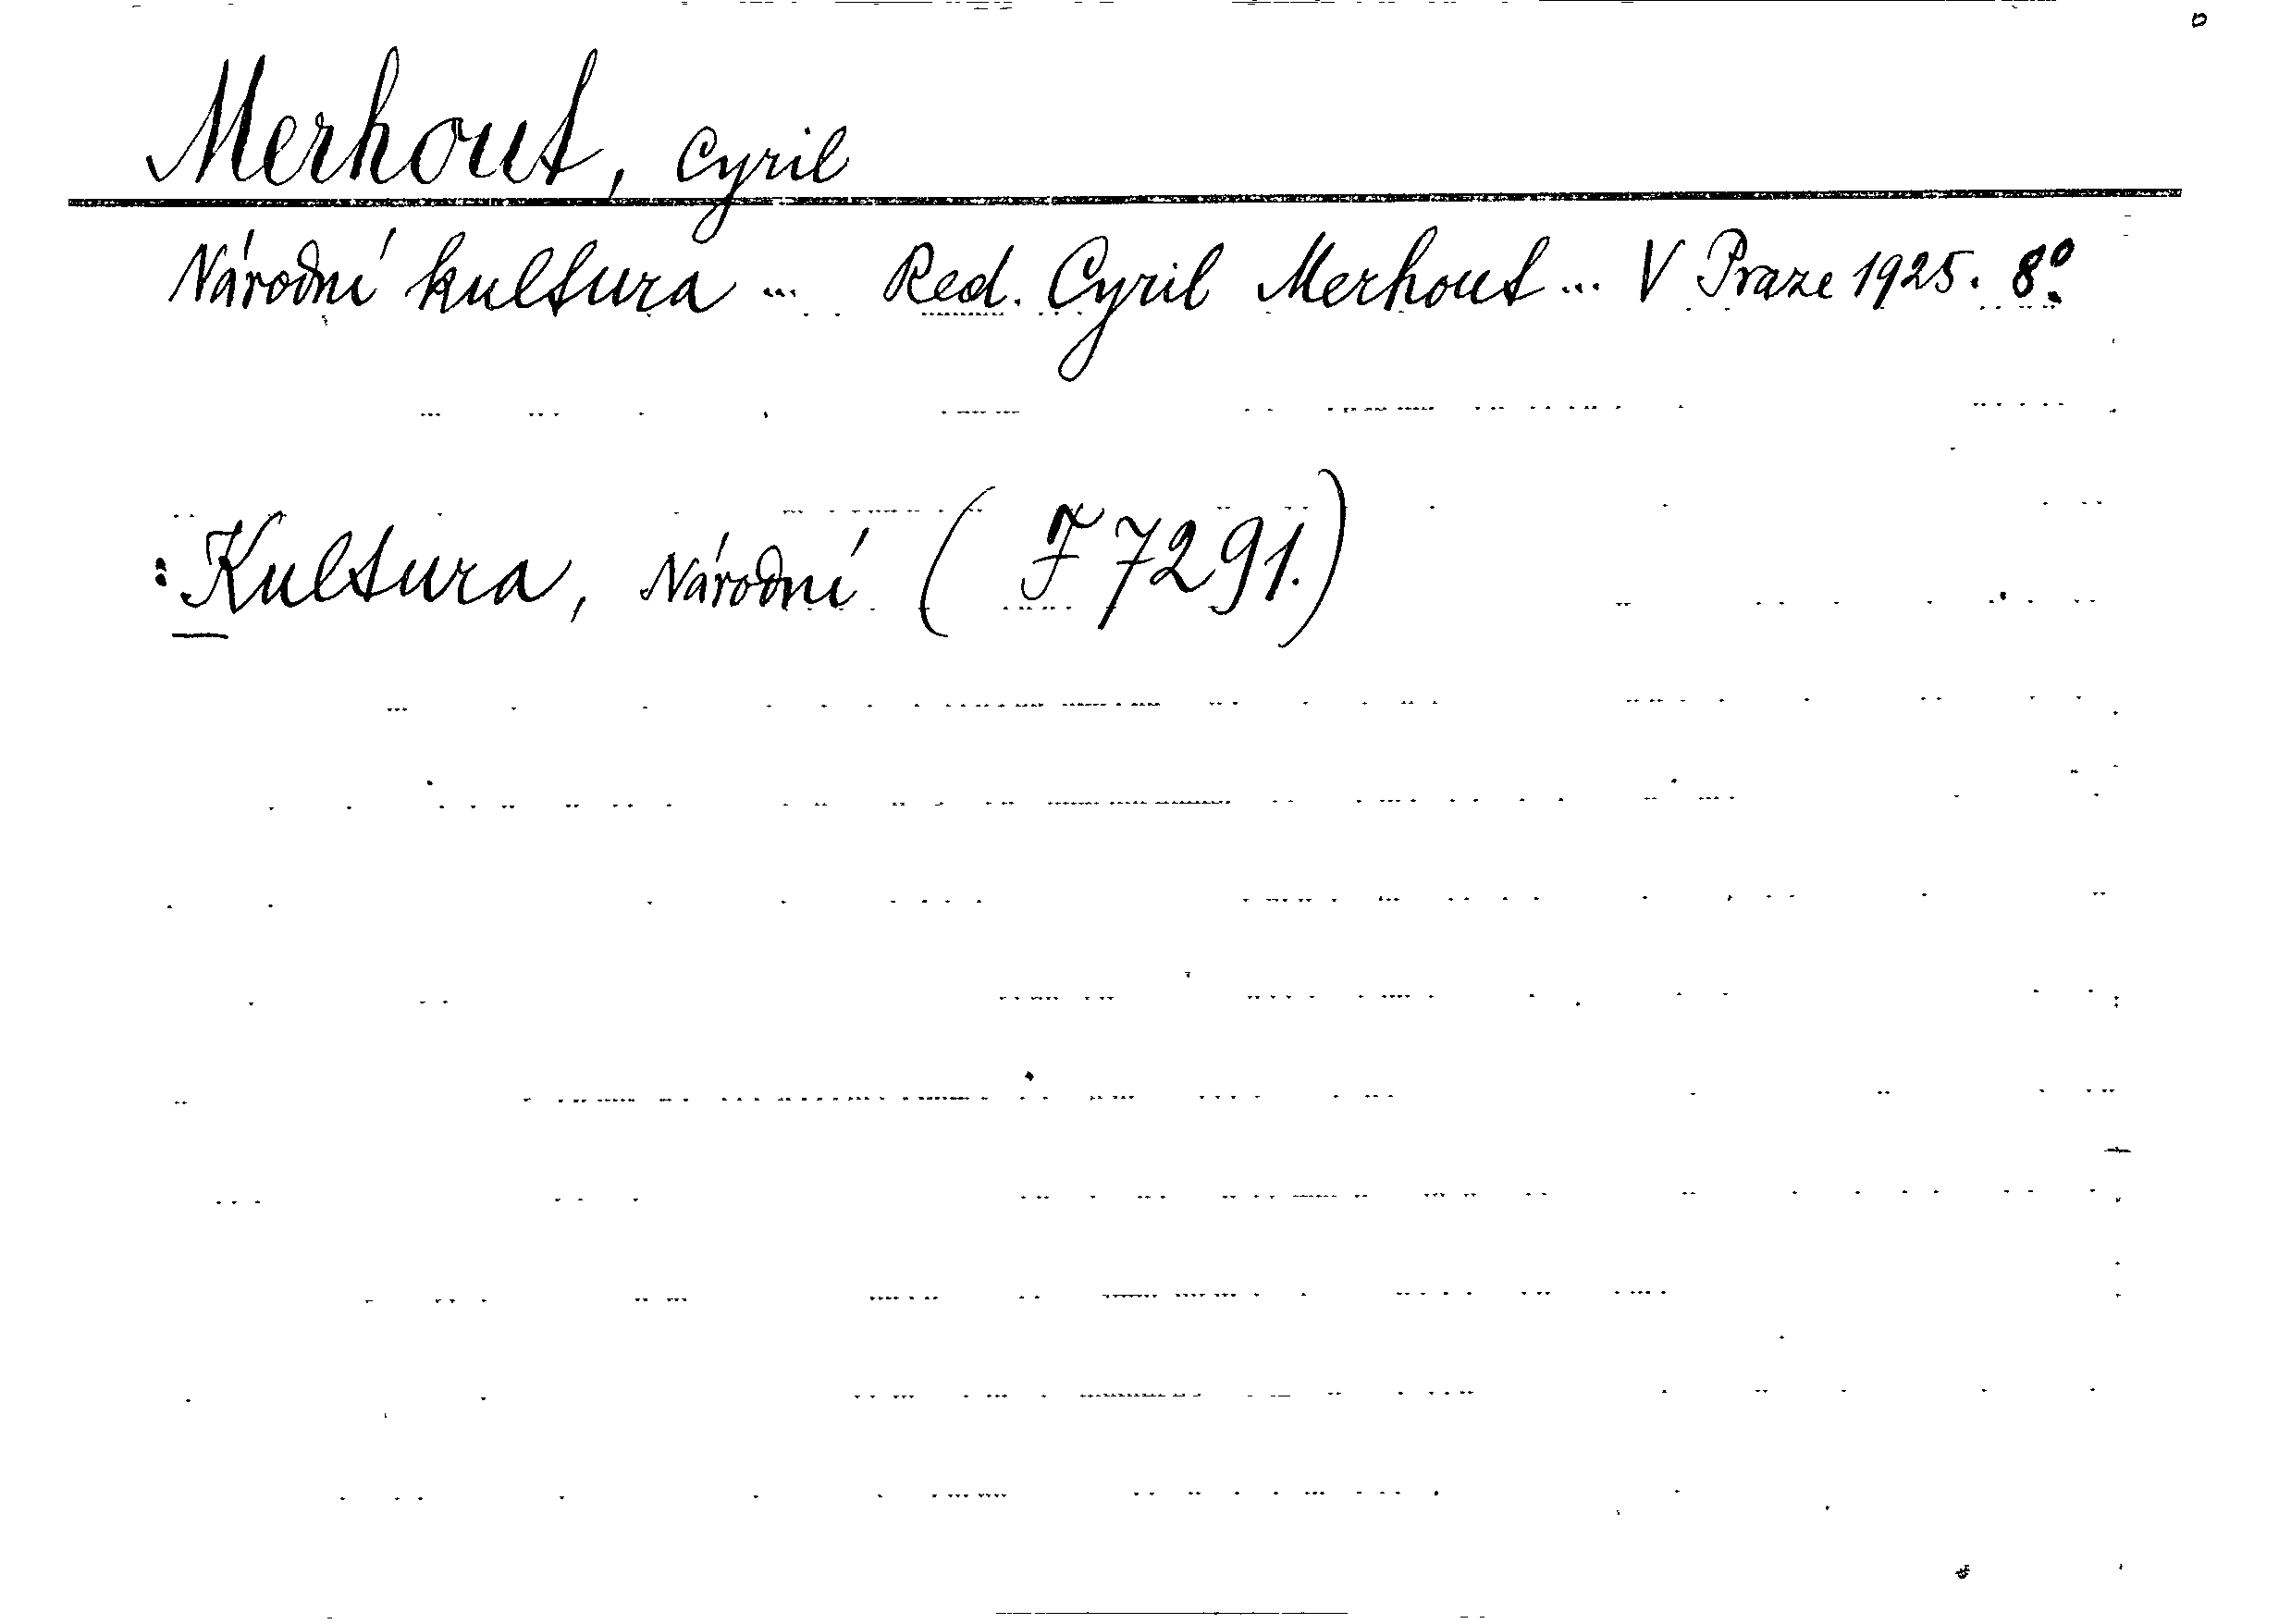 Merhout, Cyril
Národní kultura ... Red. Cyril Merhout ... V Praze 1925. 8°.
: Kultura, Národní (F 7291.)